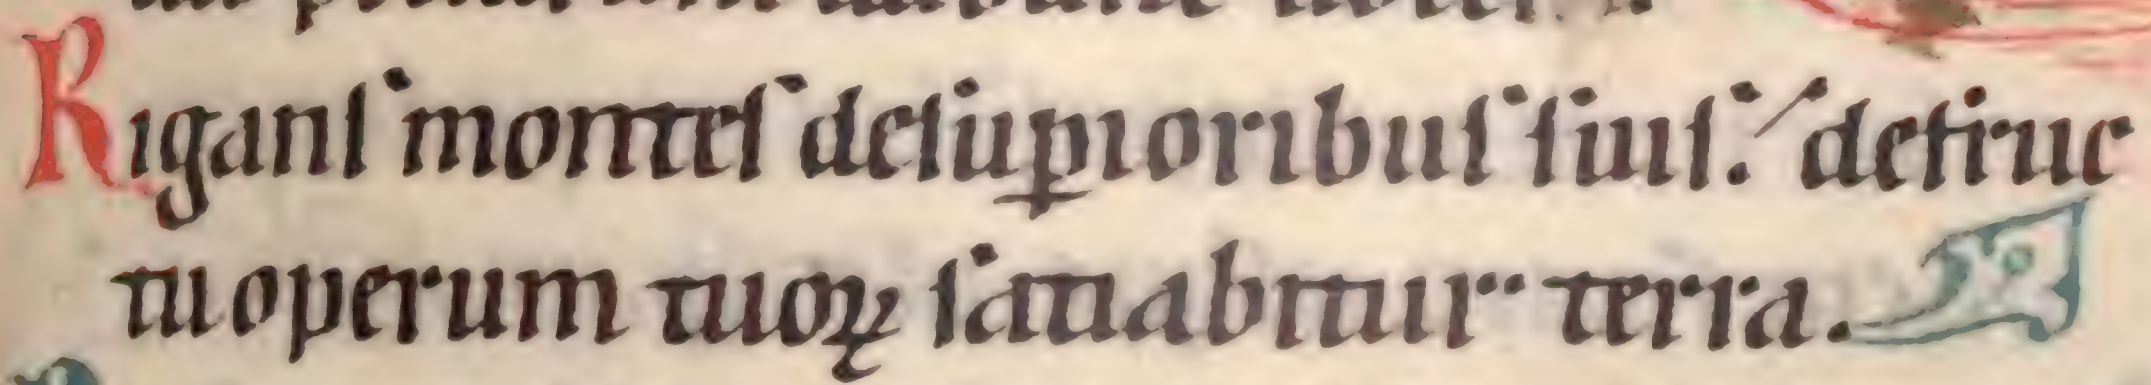 Riganſ monteſ deſuꝑioribuſ ſuiſ. defruc
tu operum tuoꝝ ſatiabitur terra.